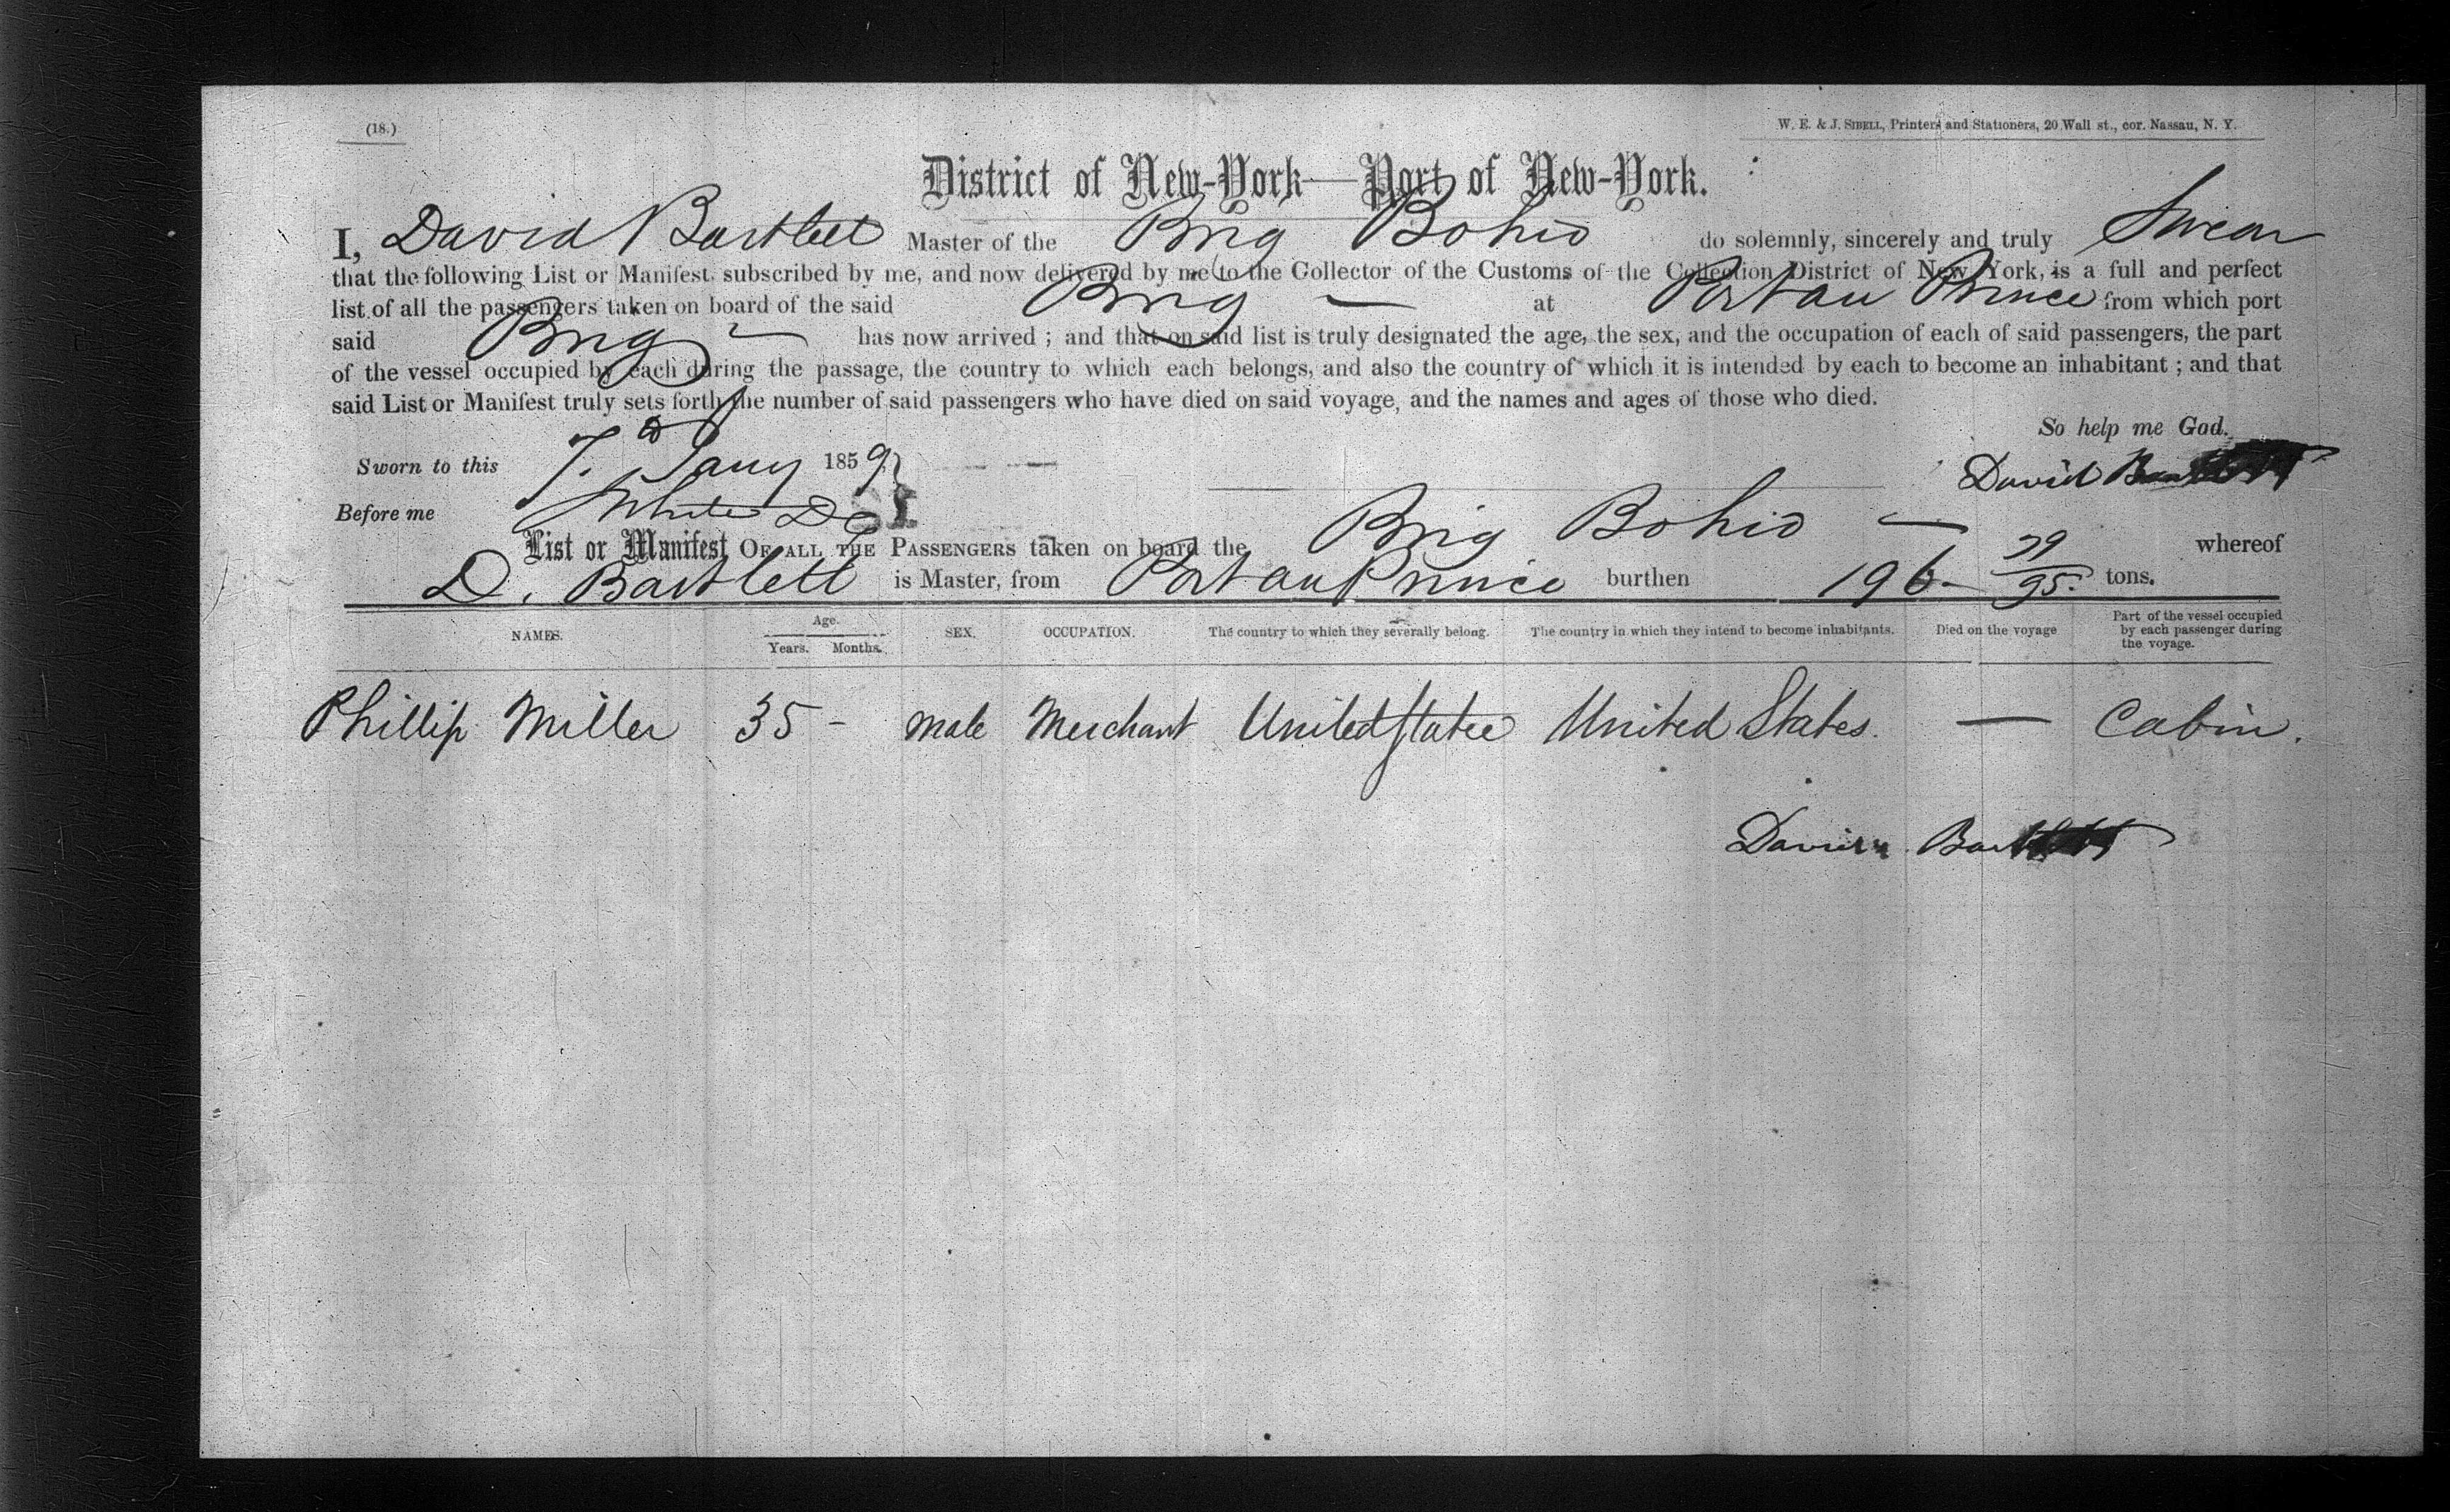 (18.)
W. E. & J. SIBELL, Printers and Stationers, 20 Wall st., cor. Nassau, N. Y.
District of New-York—Port of New-York.
I, David Bartlett Master of the Brig Bohio do solemnly, sincerely and truly Swear
that the following List or Manifest, subscribed by me, and now delivered by me to the Collector of the Customs of the Collection District of New York, is a full and perfect
list of all the passengers taken on board of the said Brig — at Port au Prince from which port
said Brig has now arrived ; and that on said list is truly designated the age, the sex, and the occupation of each of said passengers, the part
of the vessel occupied by each during the passage, the country to which each belongs, and also the country of which it is intended by each to become an inhabitant ; and that
said List or Manifest truly sets forth the number of said passengers who have died on said voyage, and the names and ages of those who died.
So help me God.
Sworn to this 7. Jany 1859
David Bartlett
Before me White
List or Manifest OF ALL THE PASSENGERS taken on board the Brig Bohio — whereof
D. Bartlett is Master, from Port au Prince burthen 196 - 39/95 tons.
NAMES. Age. Years. Months. SEX. OCCUPATION. The country to which they severally belong. The country in which they intend to become inhabitants. Died on the voyage Part of the vessel occupied by each passenger during the voyage.
Phillip Miller 35 - male Merchant United States United States. — Cabin.
David Bartlett